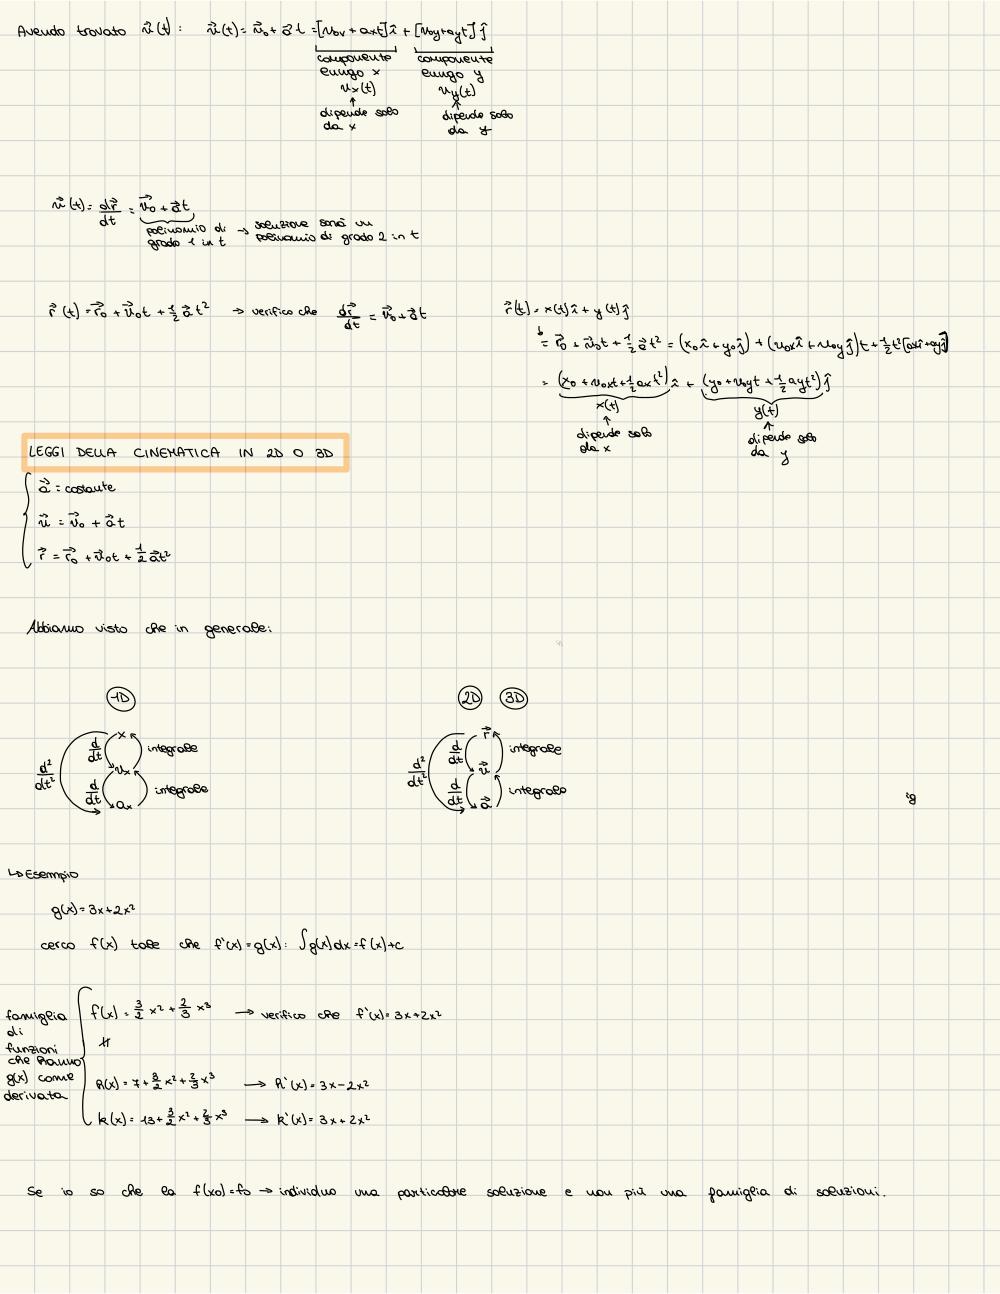 Avendo trovato v⃗(t): v⃗(t) = v⃗₀ + a⃗t = [v₀ₓ + aₓt] î + [v₀y + ayt] ĵ
componente lungo x componente lungo y
vₓ(t) vy(t)
↑ ↑
dipende solo da x dipende solo da y
v⃗(t) = dr⃗/dt = v⃗₀ + a⃗t
polinomio di grado 1 in t → soluzione sarà un polinomio di grado 2 in t
r⃗(t) = r⃗₀ + v⃗₀t + 1/2 a⃗t² → verifico che dr⃗/dt = v⃗₀ + a⃗t
r⃗(t) = x(t) î + y(t) ĵ
= r⃗₀ + v⃗₀t + 1/2 a⃗t² = (x₀ î + y₀ ĵ) + (v₀ₓ î + v₀y ĵ)t + 1/2 t² [aₓ î + ay ĵ]
= (x₀ + v₀ₓt + 1/2 aₓt²) î + (y₀ + v₀yt + 1/2 ayt²) ĵ
x(t) y(t)
↑ ↑
dipende solo da x dipende solo da y
LEGGI DELLA CINEMATICA IN 2D O 3D
a⃗ = costante
v⃗ = v⃗₀ + a⃗t
r⃗ = r⃗₀ + v⃗₀t + 1/2 a⃗t²
Abbiamo visto che in generale:
1D 2D 3D
x r⃗
d/dt integrale d/dt integrale
d²/dt² vₓ d²/dt² v⃗
d/dt integrale d/dt integrale
aₓ a⃗
↳ Esempio
g(x) = 3x + 2x²
cerco f(x) tale che f'(x) = g(x): ∫g(x)dx = f(x) + c
famiglia di funzioni che hanno g(x) come derivata
f(x) = 3/2 x² + 2/3 x³ → verifico che f'(x) = 3x + 2x²
h(x) = 7 + 3/2 x² + 2/3 x³ → h'(x) = 3x - 2x²
k(x) = 13 + 3/2 x² + 2/3 x³ → k'(x) = 3x + 2x²
Se io so che la f(x₀) = f₀ → individuo una particolare soluzione e non più una famiglia di soluzioni.